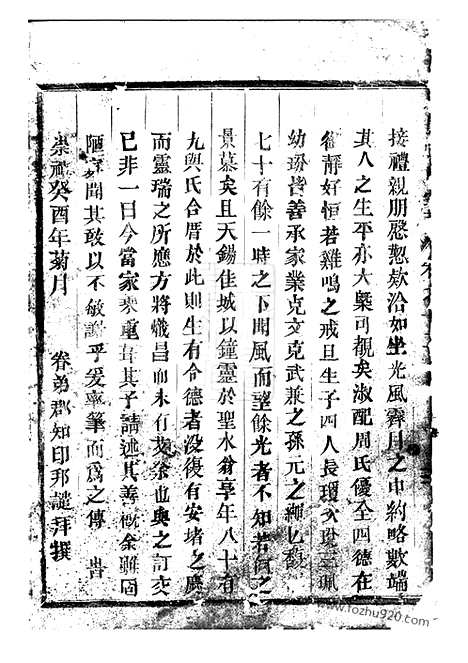 接禮親朋慇懃欸洽如坐光風霽月之中約略數端
其人之生平亦大槩可覩矣淑配周氏優全四德在
御靜好恒若雞鳴之戒旦生子四人長瓊次
幼玢皆善承家業克文克武兼之孫元之
七十有餘一時之下聞風而望餘光者不知若何之
景慕矣且天錫佳城以鐘靈於聖水翁享年八十有
九與氏合厝於此則生有令德者没復有安堵之慶
而靈瑞之所應方將熾昌而未有艾余也與之訂交
已非一日今當家乘重葺其子請述其善概余雖固
陋寡聞其敢以不敏謝乎爰搴筆而爲之傳 旹
崇禎癸酉年菊月 眷弟郡知印邦謨拜撰
www.fozhu920.com